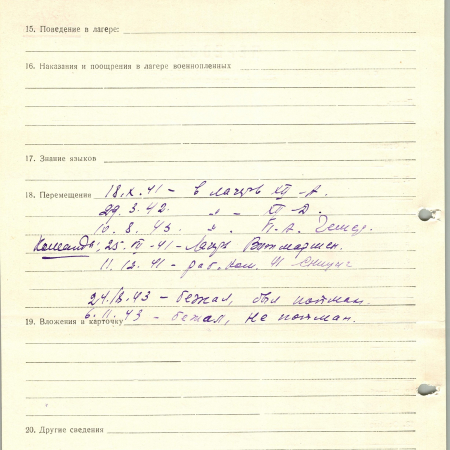 15. Поведение в лагере:
16. Наказания и поощрения в лагере военнопленных
17. Знание языков
18. Перемещение 18.X.41 - в лагерь XII-А.
29.3.42. " - " -Д.
10.8.43. "
Команды: 25.41 - Лагерь
11.12.41 - раб. ком. 41
24.43 - бежал, был пойман.
19. Вложения в карточку 6.11.43 - бежал, не пойман.
20. Другие сведения